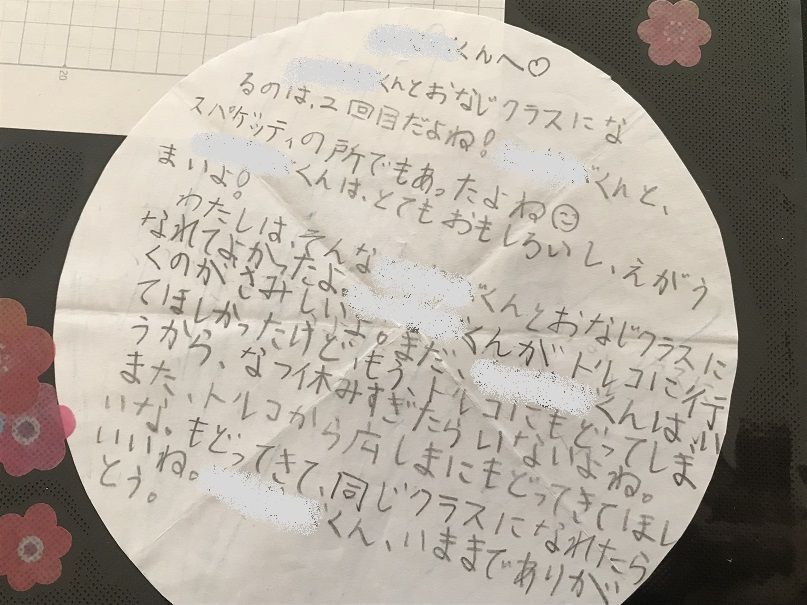 くんへ♡
くんとおなじクラスにな
るのは、2回目だよね！くんと、
スパゲッティの所でもあったよね☺
くんは、とてもおもしろいし、えがう
まいよ！
わたしは、そんなくんとおなじクラスに
なれてよかったよ。くんが、トルコに行
くのがさみしいよ。まだ、くんは、い
てほしかったけど、もう、トルコにもどってしま
うから、なつ休みすぎたらいないよね。
また、トルコから広しまにもどってきてほし
いな。もどってきて、同じクラスになれたら
いいね。くん、いままでありが
とう。
20